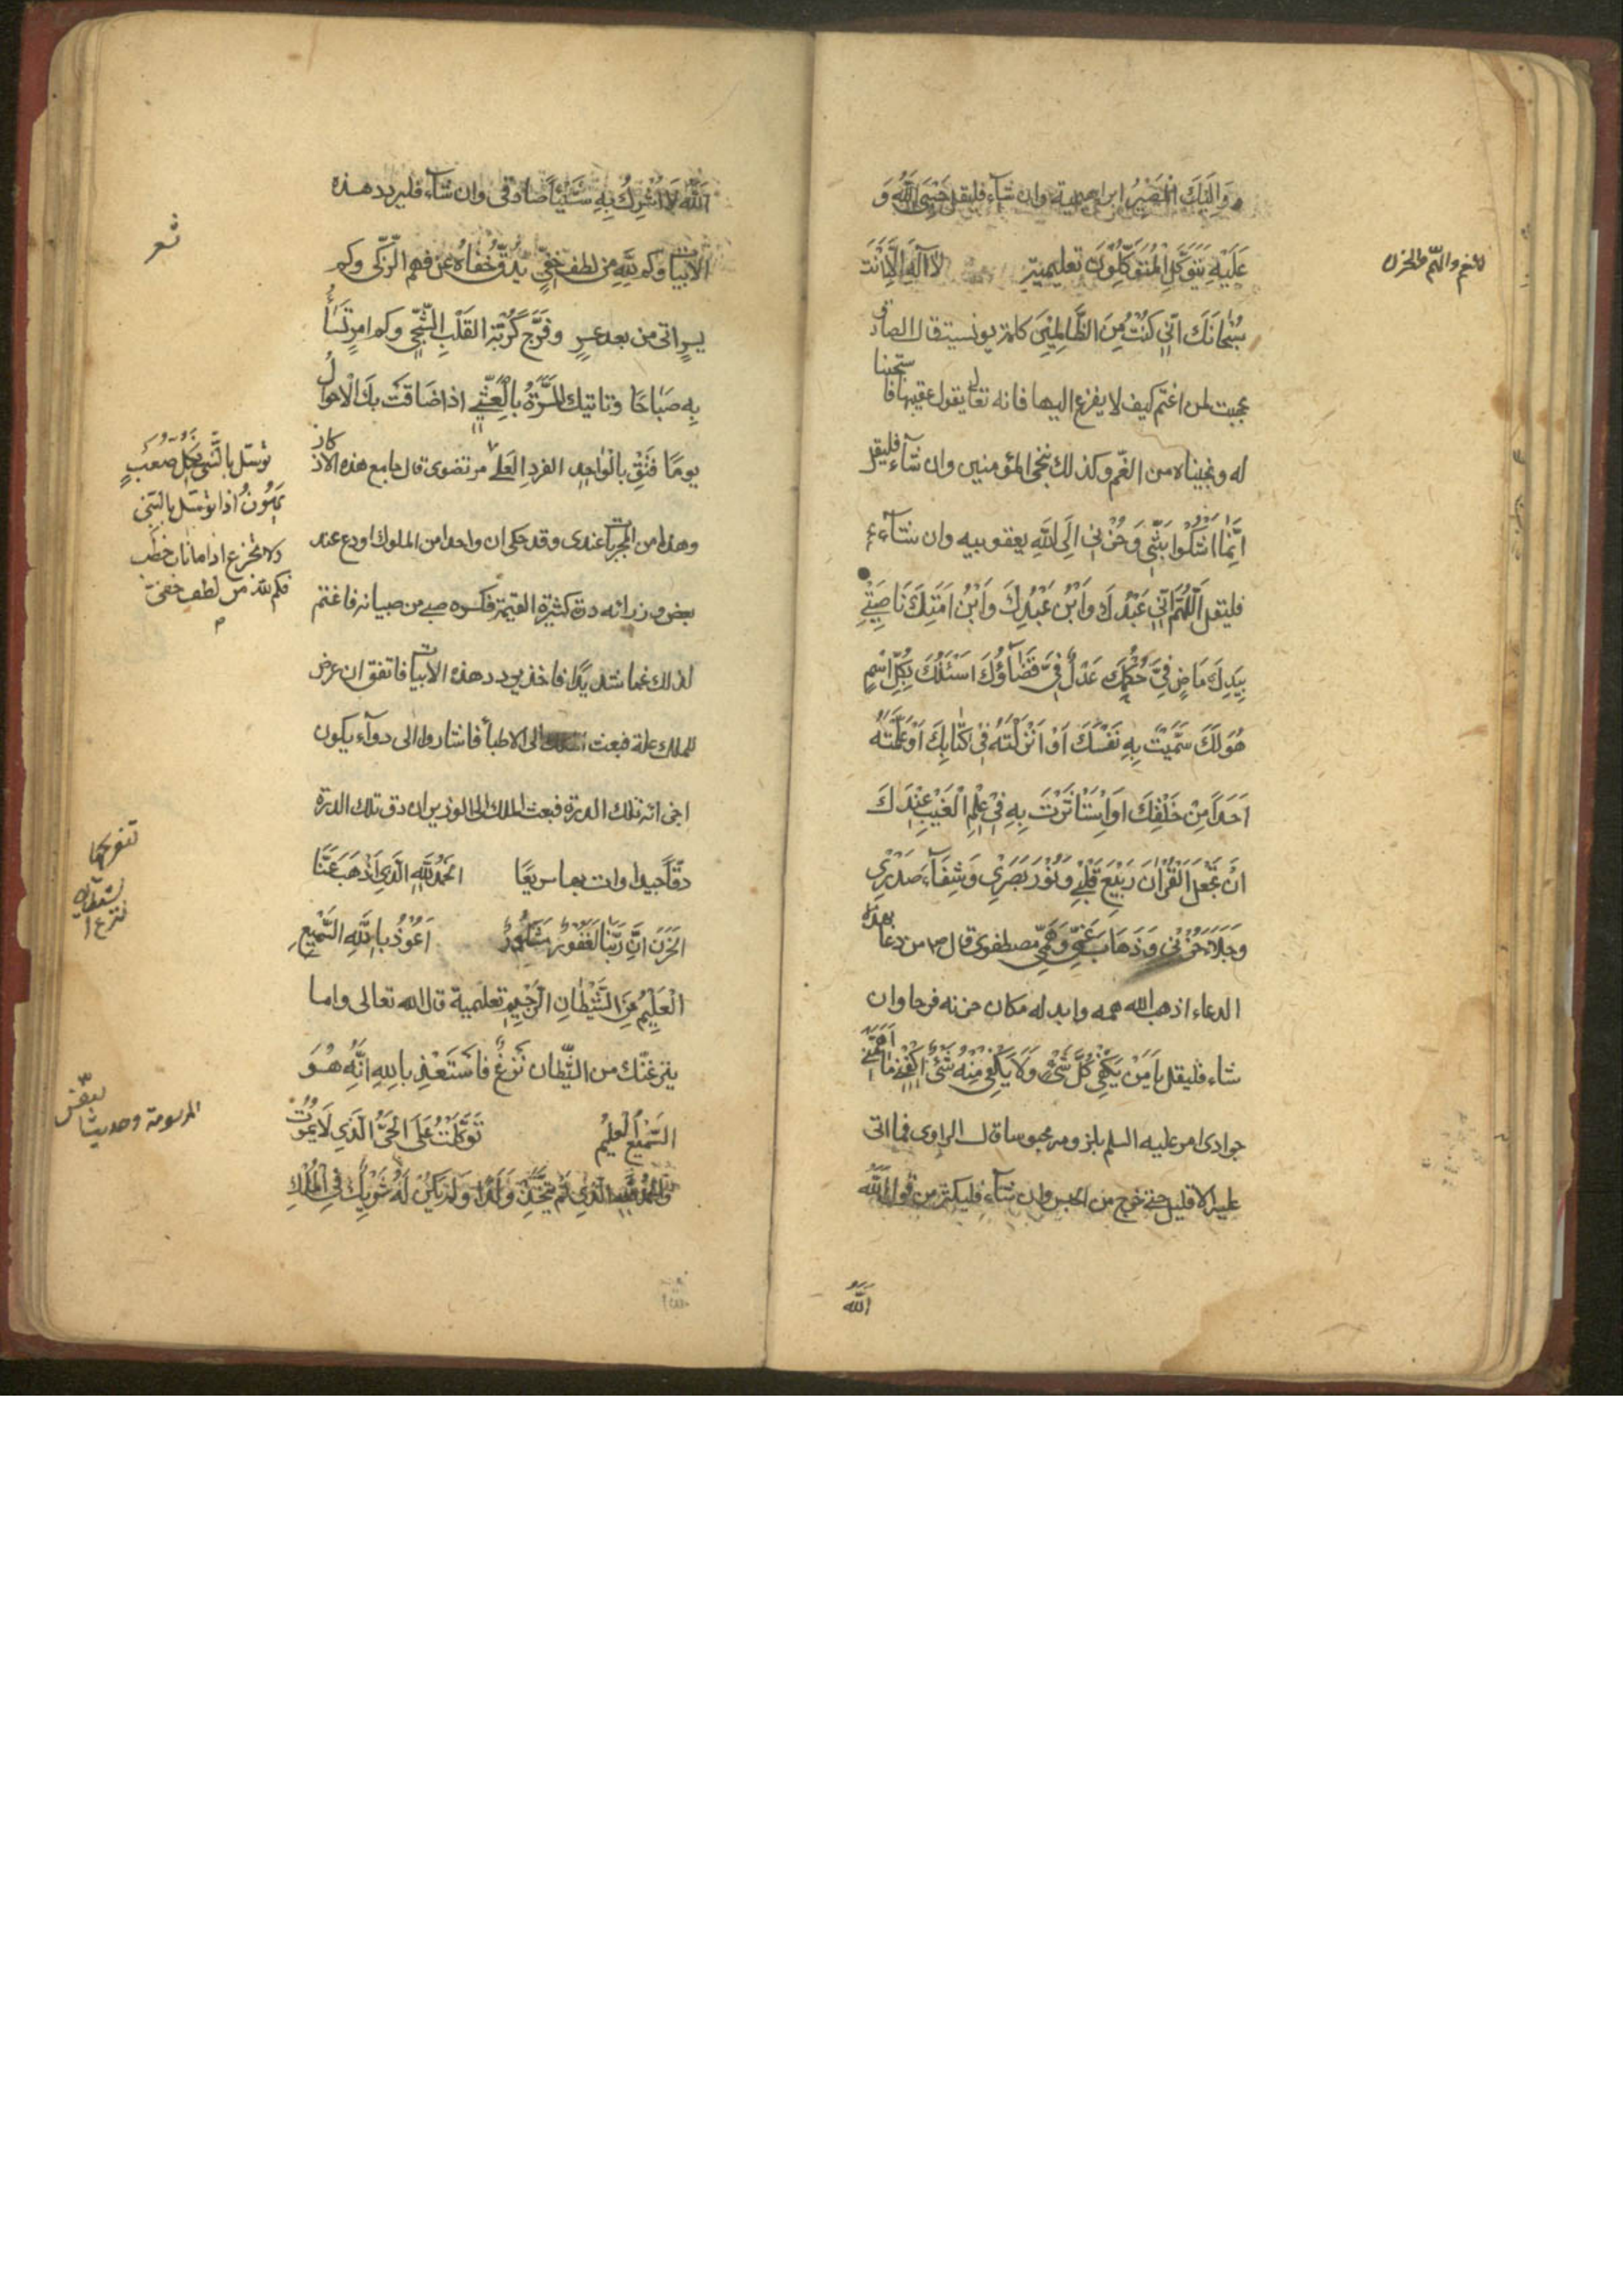 وَاِلَيْكَ الْمَصِيْرُ ابراهيمية وان شآء فليقل حَسْبِيَ اللّٰهُ وَ
عَلَيْهِ يَتَوَكَّلُ الْمُتَوَكِّلُوْنَ تعليمية لَآ اِلٰهَ اِلَّا اَنْتَ
للغم والهمّ والحزن
سُبْحَانَكَ اِنِّي كُنْتُ مِنَ الظَّالِمِيْنَ كلمة يونسية قال الصادق
عجبت لمن اغتم كيف لا يفزع اليها فانه تعالى يقول عقيبها فاستجبنا
له ونجيناه من الغمّ وكذلك ننجي المؤمنين وان شآء فليقل
اِنَّمَا اَشْكُوْا بَثِّي وَحُزْنِي اِلَى اللّٰهِ يعقوبيه وان شآء
فليقل اَللّٰهُمَّ اِنِّي عَبْدُكَ وَابْنُ عَبْدِكَ وَابْنُ اَمَتِكَ نَاصِيَتِي
بِيَدِكَ مَاضٍ فِيَّ حُكْمُكَ عَدْلٌ فِيَّ قَضَآؤُكَ اَسْئَلُكَ بِكُلِّ اسْمٍ
هُوَ لَكَ سَمَّيْتَ بِهِ نَفْسَكَ اَوْ اَنْزَلْتَهُ فِيْ كِتَابِكَ اَوْ عَلَّمْتَهُ
اَحَدًا مِنْ خَلْقِكَ اَوِ اسْتَأْثَرْتَ بِهِ فِيْ عِلْمِ الْغَيْبِ عِنْدَكَ
اَنْ تَجْعَلَ الْقُرْاٰنَ رَبِيْعَ قَلْبِي وَنُوْرَ بَصَرِيْ وَشِفَآءَ صَدْرِيْ
وَجَلَآءَ حُزْنِي وَذَهَابَ غَمِّي وَهَمِّي مصطفوى قال ص من دعا بهذا
الدعاء اذهب الله همه وابدله مكان حزنه فرجا وان
شاء فليقل يَا مَنْ يَكْفِيْ كُلَّ شَيْءٍ وَلَا يَكْفِيْ مِنْهُ شَيْءٌ اِكْفِنِيْ مَا اَهَمَّنِي
جوادى امر عليه السلم بلزومه محبوسا قال الراوى فما اتى
عليه الا قليل حتى خرج من الحبس وان شآء فليكثر من قول اَللّٰهُ
اللّٰه
اَللّٰهُ لَا اُشْرِكُ بِهِ شَيْئًا صادقى وان شآء فليردد هذه
شعر
الابيات وكم لِلّٰهِ مِنْ لطف خَفِيٍّ يَدِقُّ خَفَاهُ عَنْ فهم الزَّكِي وكم
يسرٍ اتى من بعد عسرٍ وفَرَّجَ كُرْبَةَ القَلْبِ الشَّجِّي وكم امرٍ تُسَاءُ
بِهِ صَبَاحًا وتاتيك المَسَرَّةُ بِالْعَشِيِّ اذا ضَاقَتْ بِكَ الْاَحوالُ
يومًا فَثِقْ بالْوَاحِدِ الفردِ العَلِي مرتضوى قال جامع هذه الاذكار
توسّل بالنّبي بكلّ صعبٍ
يَهُوْنُ اذا توسّل بالنبي
ولا تجزع اذا ما ناب خطب
فكم للّه من لطف خفيّ
وهذا من المجربات عندى وقد حكى ان واحدا من الملوك اودع عند
بعض وزرائه درة كثيرة القيمة فكسره صبى من صبيانه فاغتم
لذلك غما شديدًا فاخذ يردد هذه الابيات فاتفق ان عرض
للملك علة فبعث الى الاطبآء فاشاروا الى دوآء يكون
اجزائه تلك الدرة فبعث الملك الى الوزير ان دق تلك الدرة
دقّا جيدا وات بها سريعًا اَلْحَمْدُ لِلّٰهِ الَّذِيْ اَذْهَبَ عَنَّا
الْحَزَنَ اِنَّ رَبَّنَا لَغَفُوْرٌ شَكُوْرٌ اَعُوْذُ بِاللّٰهِ السَّمِيْعِ
الْعَلِيْمِ مِنَ الشَّيْطَانِ الرَّجِيْمِ تعليمية قال الله تعالى واما
ينزغنّك من الشّيطان نَزْغٌ فَاسْتَعِذْ بِاللهِ اِنَّهُ هُوَ
السَّمِيْعُ الْعَلِيْمُ تَوَكَّلْتُ عَلَى الْحَيِّ الَّذِي لَا يَمُوْتُ
وَالْحَمْدُ لِلّٰهِ الَّذِي لَمْ يَتَّخِذْ وَلَدًا وَلَمْ يَكُنْ لَهُ شَرِيْكٌ فِي الْمُلْكِ